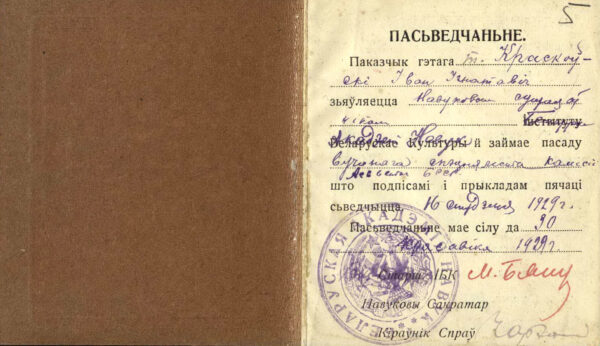 5
ПАСЬВЕДЧАНЬНЕ.
Паказчык гэтага т. Краскоў-
скі Іван Ігнатавіч
зьяўляецца Навуковым супрацоў-
нікам Інстытуту
Акадэміі Навук
Беларускае Культуры й займае пасаду
вучонага спецыяліста камісіі
БССР
што подпісамі і прыкладам пячаці
сьведчыцца. 16 студзеня 1929 г.
Пасьведчаньне мае сілу да 30
красавіка 1929 г.
Старш. ІБК
Навуковы Сакратар
Кіраўнік Спраў
БЕЛАРУСКАЯ АКАДЭМІЯ НАВУК